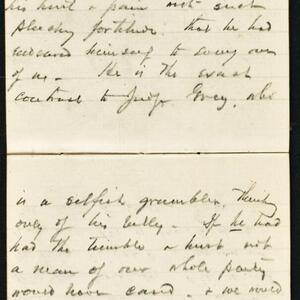 his hurt & pain with such
plucky fortitude that he had
endeared himself to every one
of us - He is the exact
contrast to Judge Grey, who
is a selfish grumbler, thinking
only of his belly - If he had
had the tumble & hurt not
a man of our whole party
would have cared & we would